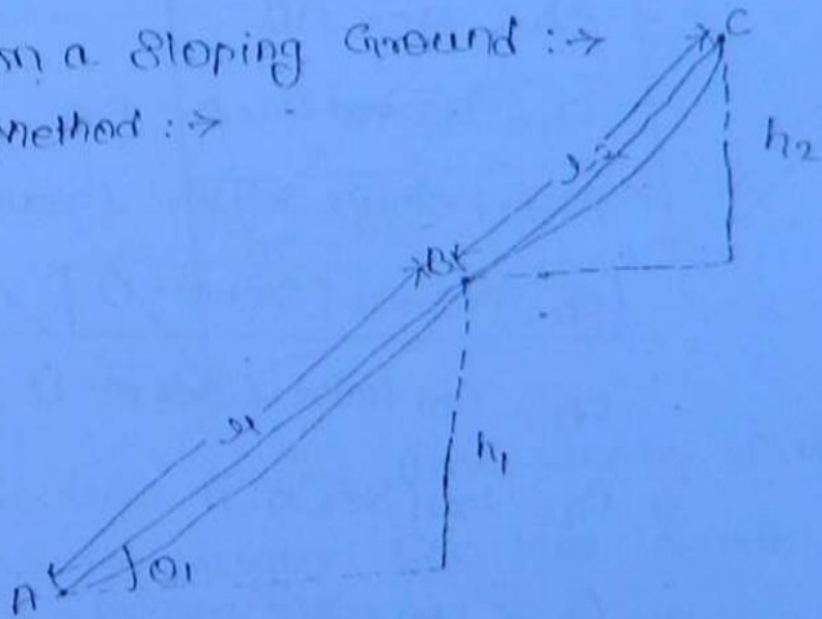 on a Sloping Ground :→
method :→
C
h2
l2
B
l1
h1
A
θ1